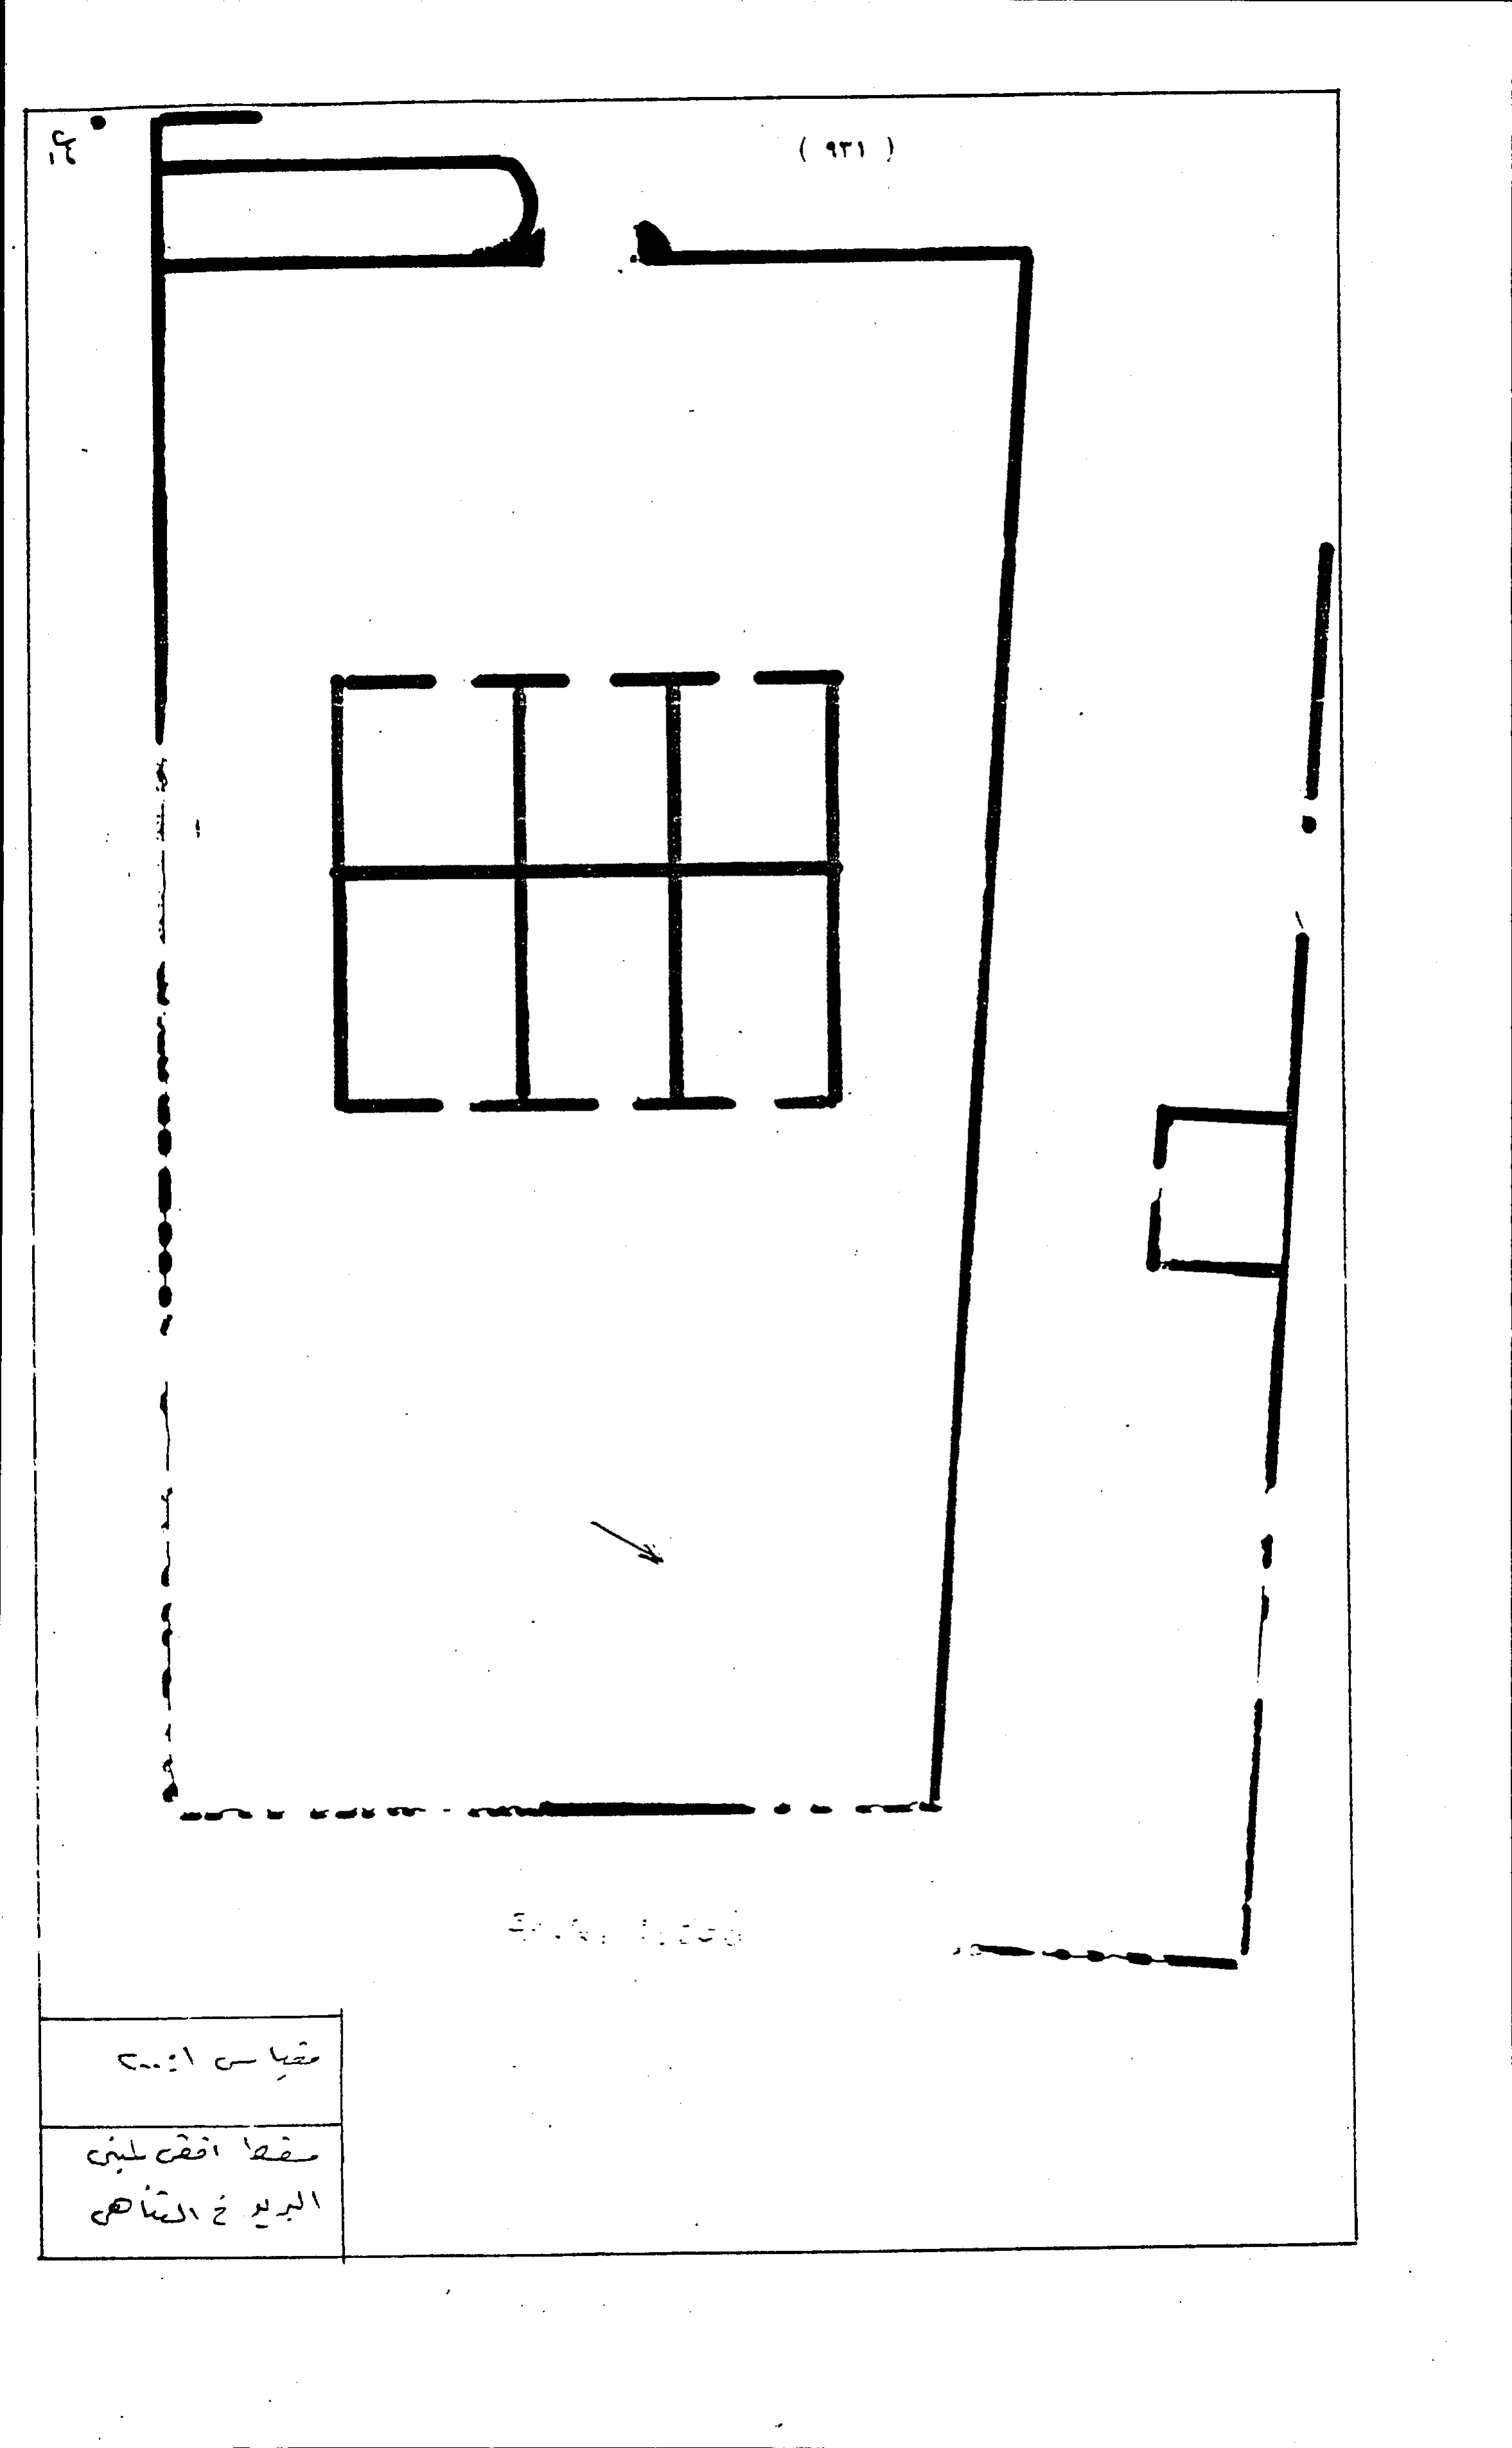 ( ٩٣١ )
مقياس ١:٢٠٠
مسقط افقى لمبنى
البريد في التناهى